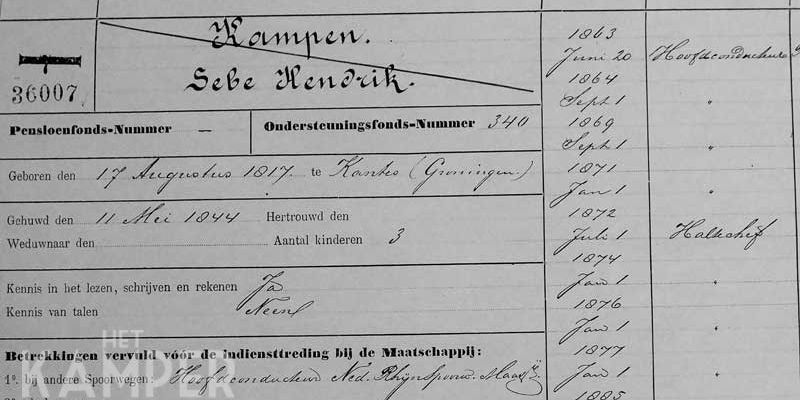 Kampen.
Sebe Hendrik.
36007
Pensioenfonds-Nummer — Ondersteuningsfonds-Nummer 340
Geboren den 17 Augustus 1817. te Kantes (Groningen)
Gehuwd den 11 Mei 1844 Hertrouwd den
Weduwnaar den Aantal kinderen 3
Kennis in het lezen, schrijven en rekenen Ja
Kennis van talen Neen
Betrekkingen vervuld vóór de indiensttreding bij de Maatschappij:
1°. bij andere Spoorwegen: Hoofdconducteur Ned. Rhijnspoorw. Maatsij.
1863
Juni 20 Hoofdconducteur
1864
Sept 1 "
1869
Sept 1 "
1871
Jan 1 "
1872
Juli 1 Haltechef
1874
Jan 1 "
1876
Jan 1 "
1877
Jan 1 "
1885
HET
KAMPER